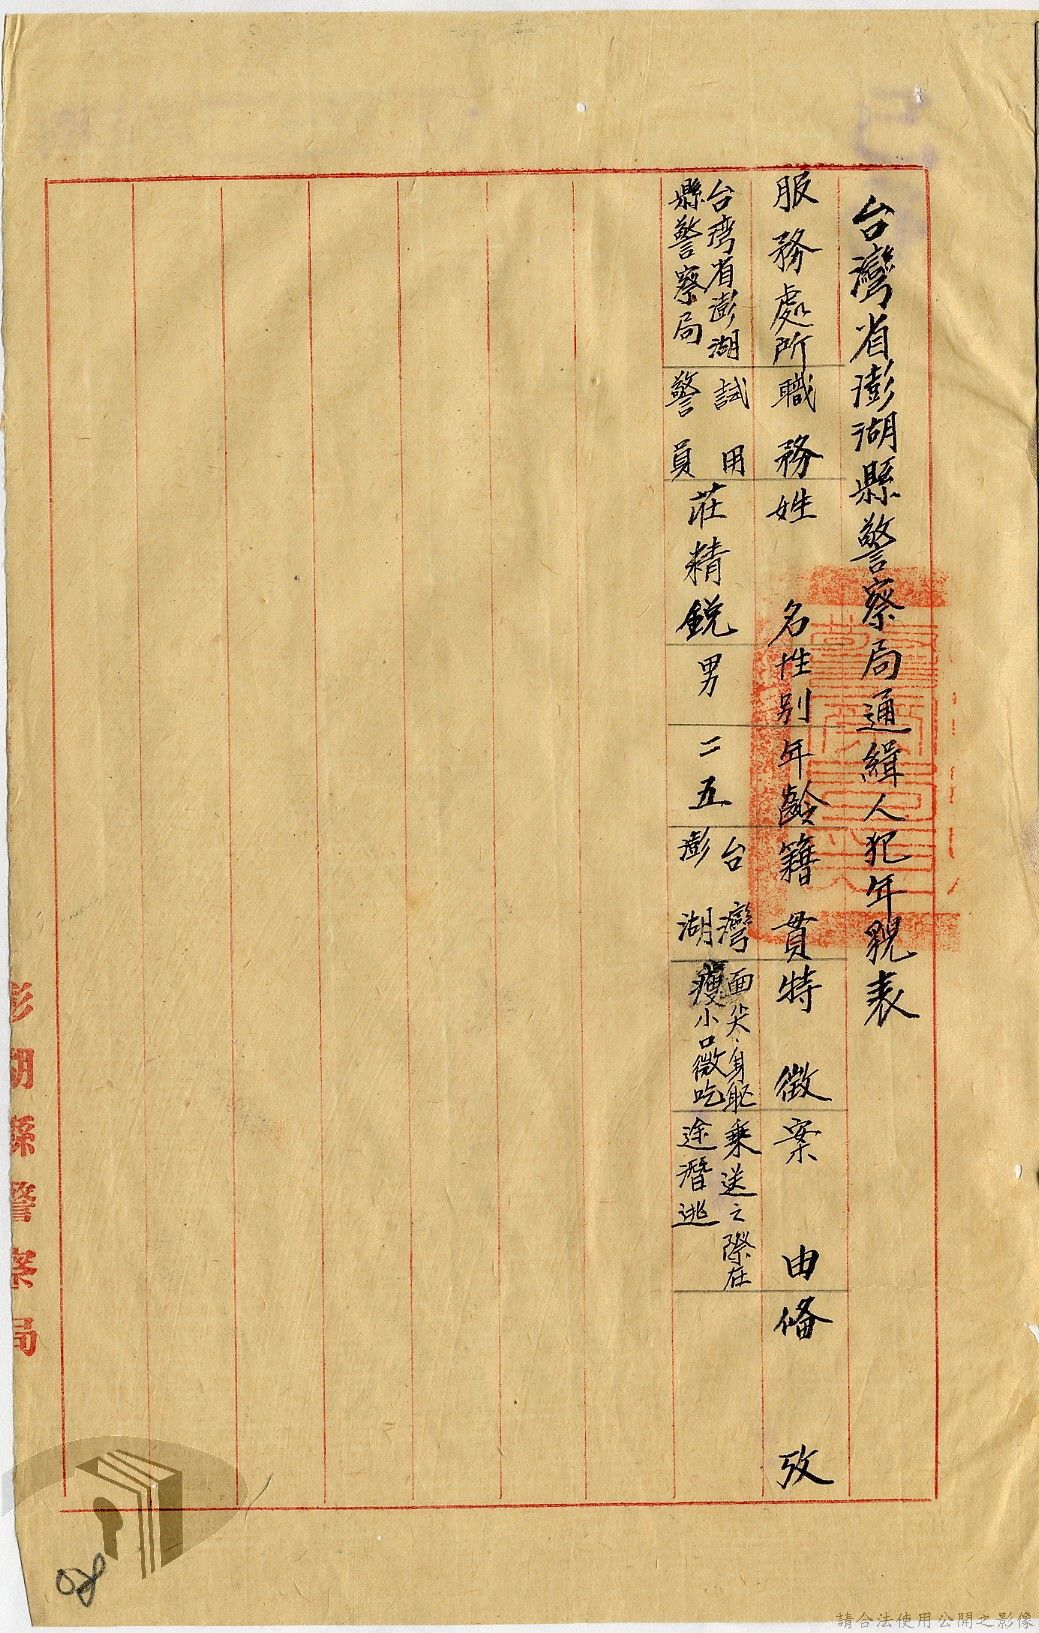 台灣省澎湖縣警察局通緝人犯年貌表
服務處所
職務
姓名
性別
年齡
籍貫
特徵
案由
備攷
台湾省澎湖
縣警察局
試用
警員
莊精銳
男
二五
台灣
澎湖
面尖身
瘦小口微吃
乘送之際在
途潛逃
澎湖縣警察局
請合法使用公開之影像